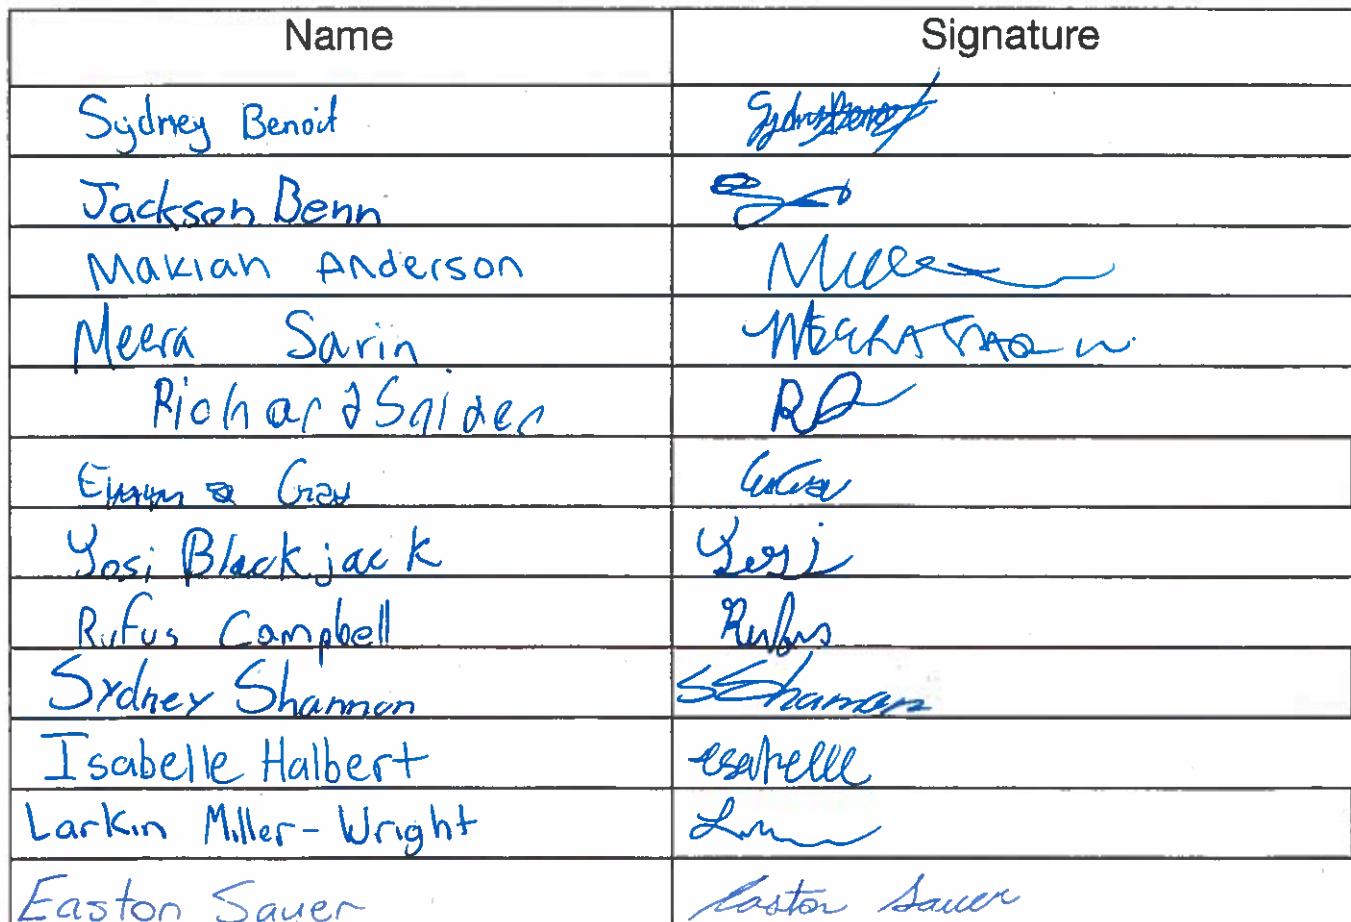 Name Signature
Sydney Benoit
Jackson Benn
Makiah Anderson
Meera Sarin MEERA
Richard Snider
Emma Gray
Yosi Blackjack Yosi
Rufus Campbell Rufus
Sydney Shannon SShannon
Isabelle Halbert Isabelle
Larkin Miller-Wright
Easton Sauer Easton Sauer